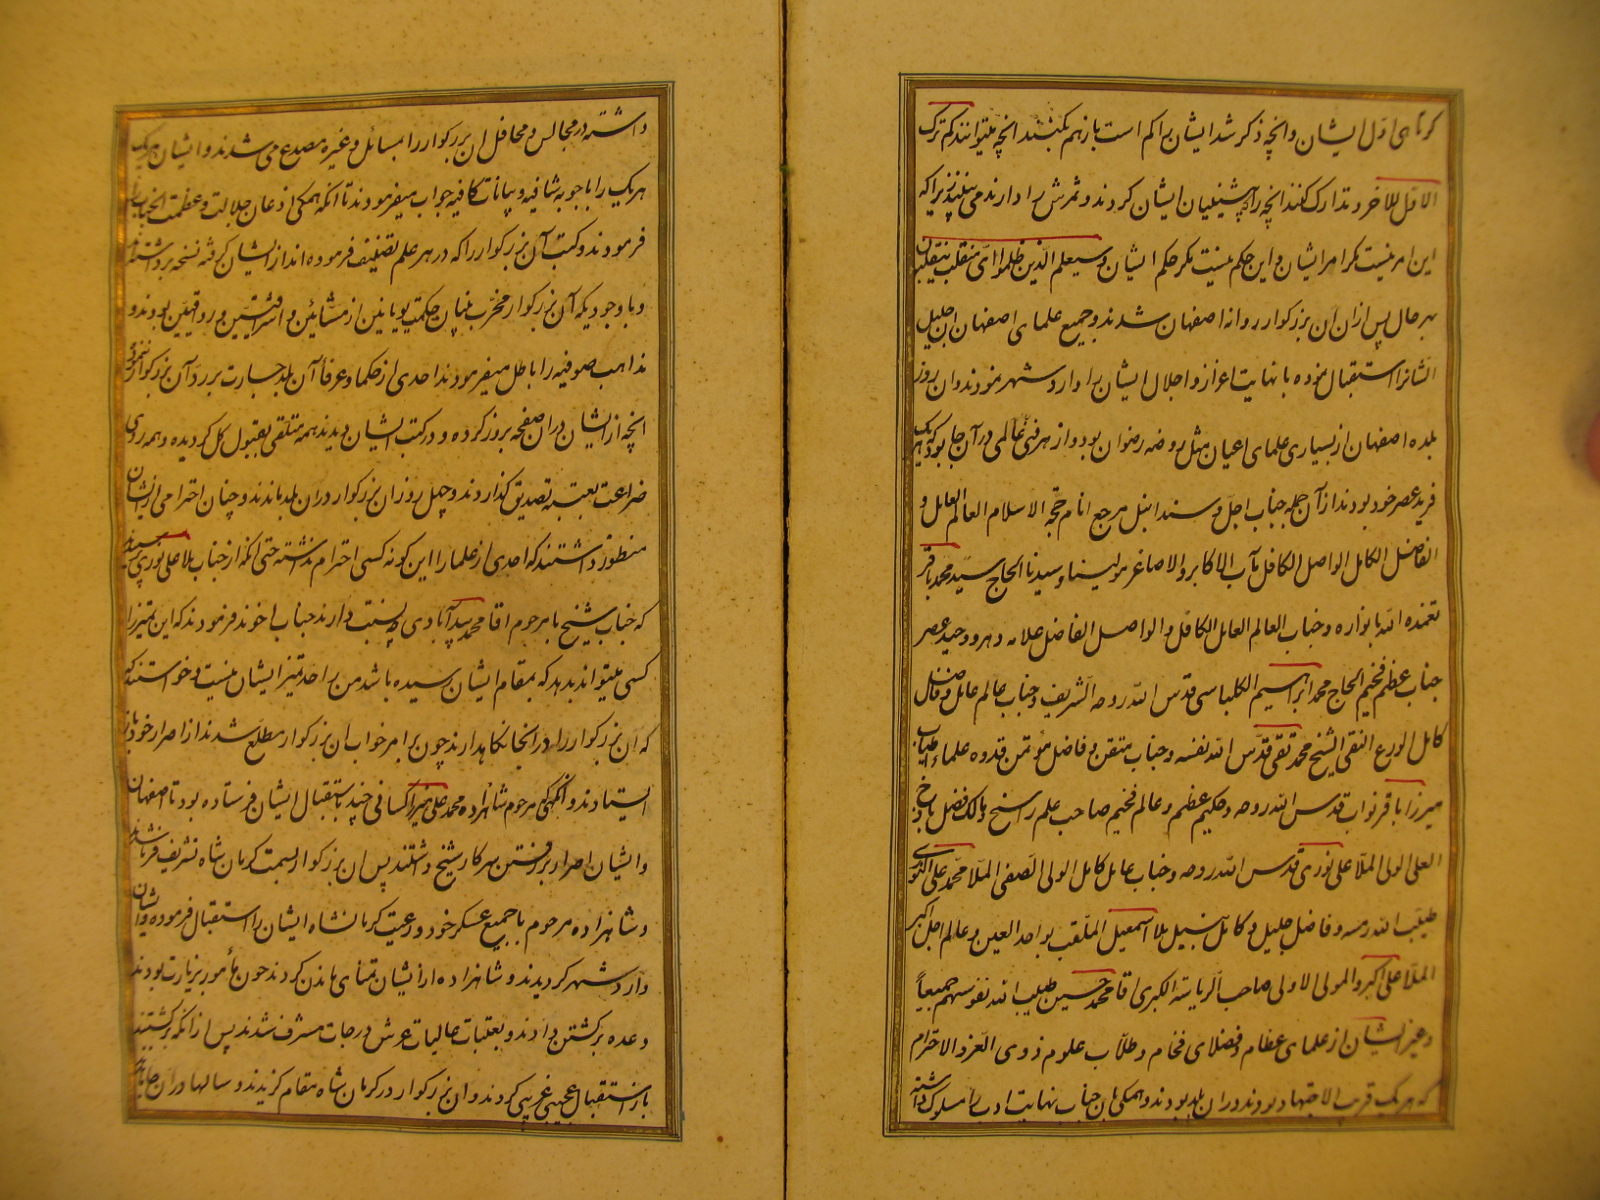 کرنای اول ایشان و انچه ذکر شد ایشان را کم است باز هم بکنند انچه میتوانند کم ترک
الاوّل للآخر و تدارک کنند انچه را پیشینیان ایشان کردند و ثمرش را دارند می بینند زیرا که
این امر نیست مگر امر ایشان و این حکم نیست مگر حکم ایشان و سیعلم الّذین ظلموا ایّ منقلب ینقلبون
بهر حال پس از ان ان بزرکوار روانه اصفهان شدند و جمیع علمای اصفهان ان جلیل
الشانرا استقبال نموده با نهایت اعزاز و اجلال ایشان را وارد شهر نمودند و ان روز
بلده اصفهان از بسیاری علمای اعیان مثل روضه رضوان بود و از هر فنّی عالمی در آن جا بود که هریک
فرید عصر خود بودند از آن جمله جناب اجلّ و سند انبل مرجع انام حجّة الاسلام العالم العامل و
الفاضل الکامل الواصل الکافل مآب الاکابر و الاصاغر مولینا و سیدنا الحاج سیّد محمد باقر
تغمّده اللّه بانواره و جناب العالم العامل الکافل و الواصل الفاضل علامه دهر و وحید عصر
جناب عظم فخیم الحاج محمد ابراهیم الکلباسی قدّس اللّه روحه الشریف و جناب عالم عامل و فاضل
کامل الورع التقی الشیخ محمد تقی قدّس اللّه نفسه و جناب متقن و فاضل مؤتمن قدوه علماء اطیاب
میرزا باقر نواب قدس اللّه روحه و حکیم عظم و عالم فخیم صاحب علم راسخ و مالک فضل باذخ
العلی الولی الملّا علی نوری قدس اللّه روحه و جناب عامل کامل الولی الصّفی الملّا محمّد علی النوری
طیّب اللّه رمسه و فاضل جلیل و کامل نبیل ملا اسمعیل الملّقب بواحد العین و عالم اجلّ اکبر
الملّا علی اکبر و المولی الاولی صاحب الریاسة الکبری اقا محمد حسین طیب اللّه نفوسهم جمیعاً
و غیر ایشان از علمای عظام و فضلای فخام و طلّاب علوم ذوی العز و الاحترام
که هر یک قریب الاجتهاد بودند در ان بلد بودند و همکی بان جناب نهایت ادب را مسلوک داشته
داشته در مجالس و محافل ان بزرکوار را بمسائل و غیره مصدع می شدند و ایشان هریک
هریک را باجوبه شافیه و بیانات کافیه جواب میفرمودند تا انکه همکی اذعان جلالت و عظمت انجناب را
فرمودند و کتب آن بزرکوار را که در هر علم تصنیف فرموده اند از ایشان کرفته نسخه برداشتند
و با وجودیکه آن بزرکوار مخرّب بنیان حکمت یونانیین از مشائین و اشراقیّین و رواقیّین بودند و
مذاهب صوفیه را باطل میفرمودند احدی از حکما و عرفأ آن بلد جسارت بر رد آن بزرکوار ننمود
انچه از ایشان در ان صفحه بروز کرده و در کتب ایشان دیدند همه متلقی بقبول کل کردیده و همه روی
ضراعت بعتبه تصدیق کذاردند و چهل روز ان بزرکوار در ان بلد ماندند و چنان احترامی از ایشان
منظور داشتند که احدی از علما را این کونه کسی احترام نداشته حتی انکه از جناب ملا علی نوری پرسیدند
که جناب شیخ با مرحوم اقا محمد بید آبادی چه نسبت دارند جناب اخوند فرمودند که این تمیز را
کسی میتواند بدهد که بمقام ایشان رسیده باشد من را حد تمیز ایشان نیست و خواستند
که ان بزرکوار را در انجا نکاهدارند چون بر امر خواب ان بزرکوار مطلع شدند از اصرار خود باز
ایستادند و انکهی مرحوم شاهزاده محمد علی میرزا کسانی چند باستقبال ایشان فرستاده بود تا اصفهان
و ایشان اصرار بر رفتن سرکار شیخ داشتند پس ان بزرکوار بسمت کرمان شاه تشریف فرما شدند
و شاهزاده مرحوم با جمیع عسکر خود و رعیت کرمانشاه ایشان را استقبال فرموده و ایشان
وارد شهر کردیدند و شاهزاده از ایشان تمنای ماندن کردند چون مأمور بزیارت بودند
وعده برکشتن دادند و بعتبات عالیات عرش درجات مشرف شدند پس از انکه برکشتند
باز استقبال عجیبی غریبی کردند و ان بزرکوار در کرمان شاه مقام کزیدند و سالها در ان جا ماندند